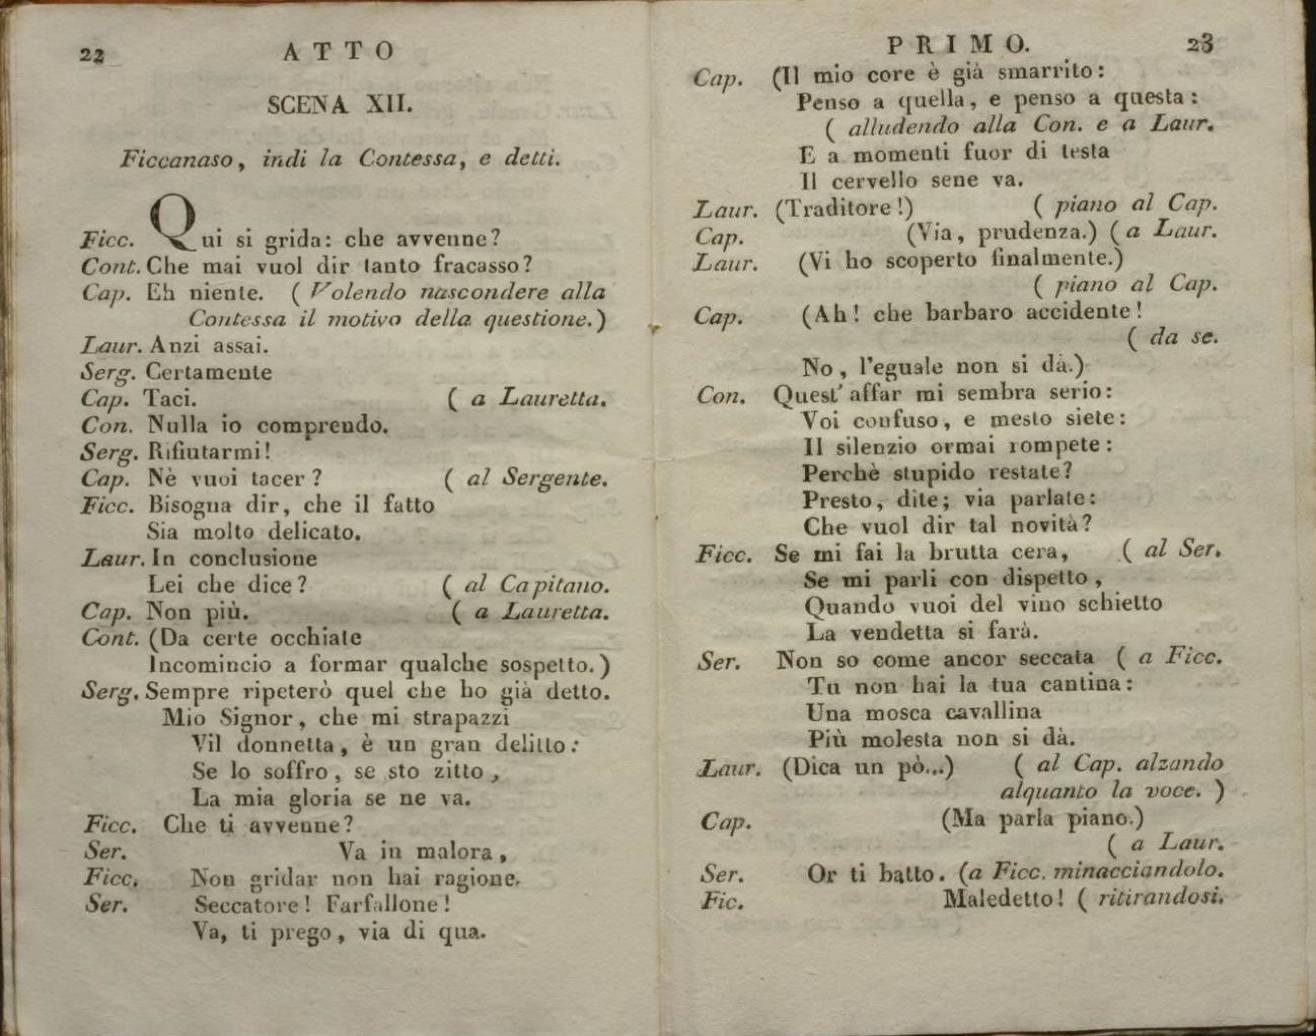 22 ATTO
SCENA XII.
Ficcanaso, indi la Contessa, e detti.
Ficc. Qui si grida: che avvenne?
Cont. Che mai vuol dir tanto fracasso?
Cap. Eh niente. ( Volendo nascondere alla
Contessa il motivo della questione.)
Laur. Anzi assai.
Serg. Certamente
Cap. Taci. ( a Lauretta.
Con. Nulla io comprendo.
Serg. Rifiutarmi!
Cap. Nè vuoi tacer? ( al Sergente.
Ficc. Bisogna dir, che il fatto
Sia molto delicato.
Laur. In conclusione
Lei che dice? ( al Capitano.
Cap. Non più. ( a Lauretta.
Cont. (Da certe occhiate
Incomincio a formar qualche sospetto.)
Serg. Sempre ripeterò quel che ho già detto.
Mio Signor, che mi strapazzi
Vil donnetta, è un gran delitto:
Se lo soffro, se sto zitto,
La mia gloria se ne va.
Ficc. Che ti avvenne?
Ser. Va in malora,
Ficc. Non gridar non hai ragione.
Ser. Seccatore! Farfallone!
Va, ti prego, via di qua.
PRIMO. 23
Cap. (Il mio core è già smarrito:
Penso a quella, e penso a questa:
( alludendo alla Con. e a Laur.
E a momenti fuor di testa
Il cervello sene va.
Laur. (Traditore!) ( piano al Cap.
Cap. (Via, prudenza.) ( a Laur.
Laur. (Vi ho scoperto finalmente.)
( piano al Cap.
Cap. (Ah! che barbaro accidente!
( da se.
No, l'eguale non si dà.)
Con. Quest' affar mi sembra serio:
Voi confuso, e mesto siete:
Il silenzio ormai rompete:
Perchè stupido restate?
Presto, dite; via parlate:
Che vuol dir tal novità?
Ficc. Se mi fai la brutta cera, ( al Ser.
Se mi parli con dispetto,
Quando vuoi del vino schietto
La vendetta si farà.
Ser. Non so come ancor seccata ( a Ficc.
Tu non hai la tua cantina:
Una mosca cavallina
Più molesta non si dà.
Laur. (Dica un pò...) ( al Cap. alzando
alquanto la voce. )
Cap. (Ma parla piano.)
( a Laur.
Ser. Or ti batto. (a Ficc. minacciandolo.
Fic. Maledetto! ( ritirandosi.